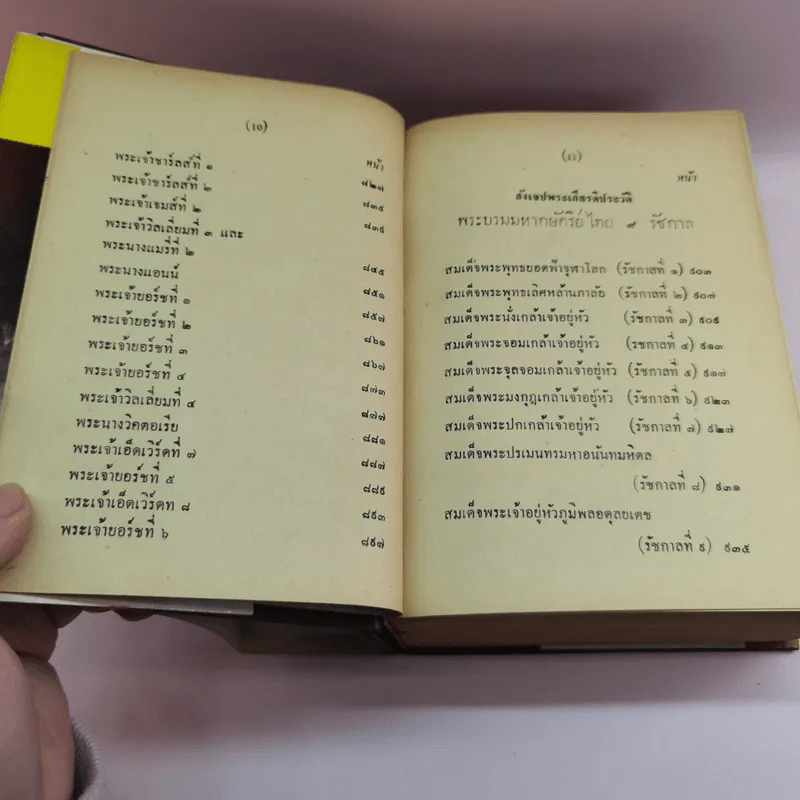 (๑๐)
หน้า
พระเจ้าชาร์ลส์ที่ ๑ ๘๒๗
พระเจ้าชาร์ลส์ที่ ๒ ๘๓๕
พระเจ้าเจมส์ที่ ๒ ๘๓๙
พระเจ้าวิลเลี่ยมที่ ๓ และ
พระนางแมรี่ที่ ๒ ๘๔๕
พระนางแอนน์ ๘๕๑
พระเจ้ายอร์ชที่ ๑ ๘๕๗
พระเจ้ายอร์ชที่ ๒ ๘๖๑
พระเจ้ายอร์ชที่ ๓ ๘๖๗
พระเจ้ายอร์ชที่ ๔ ๘๗๓
พระเจ้าวิลเลี่ยมที่ ๔ ๘๗๗
พระนางวิคตอเรีย ๘๘๑
พระเจ้าเอ็ดเวิร์ดที่ ๗ ๘๘๗
พระเจ้ายอร์ชที่ ๕ ๘๘๙
พระเจ้าเอ็ดเวิร์ดท ๘ ๘๙๓
พระเจ้ายอร์ชที่ ๖ ๘๙๗
(๑๑)
หน้า
สังเขปพระเกียรติประวัติ
พระบรมมหากษัตริย์ไทย ๙ รัชกาล
สมเด็จพระพุทธยอดฟ้าจุฬาโลก (รัชกาลที่ ๑) ๙๐๓
สมเด็จพระพุทธเลิศหล้านภาลัย (รัชกาลที่ ๒) ๙๐๗
สมเด็จพระนั่งเกล้าเจ้าอยู่หัว (รัชกาลที่ ๓) ๙๐๙
สมเด็จพระจอมเกล้าเจ้าอยู่หัว (รัชกาลที่ ๔) ๙๑๓
สมเด็จพระจุลจอมเกล้าเจ้าอยู่หัว (รัชกาลที่ ๕) ๙๑๗
สมเด็จพระมงกุฎเกล้าเจ้าอยู่หัว (รัชกาลที่ ๖) ๙๒๓
สมเด็จพระปกเกล้าเจ้าอยู่หัว (รัชกาลที่ ๗) ๙๒๗
สมเด็จพระปรเมนทรมหาอนันทมหิดล
(รัชกาลที่ ๘) ๙๓๑
สมเด็จพระเจ้าอยู่หัวภูมิพลอดุลยเดช
(รัชกาลที่ ๙) ๙๓๕